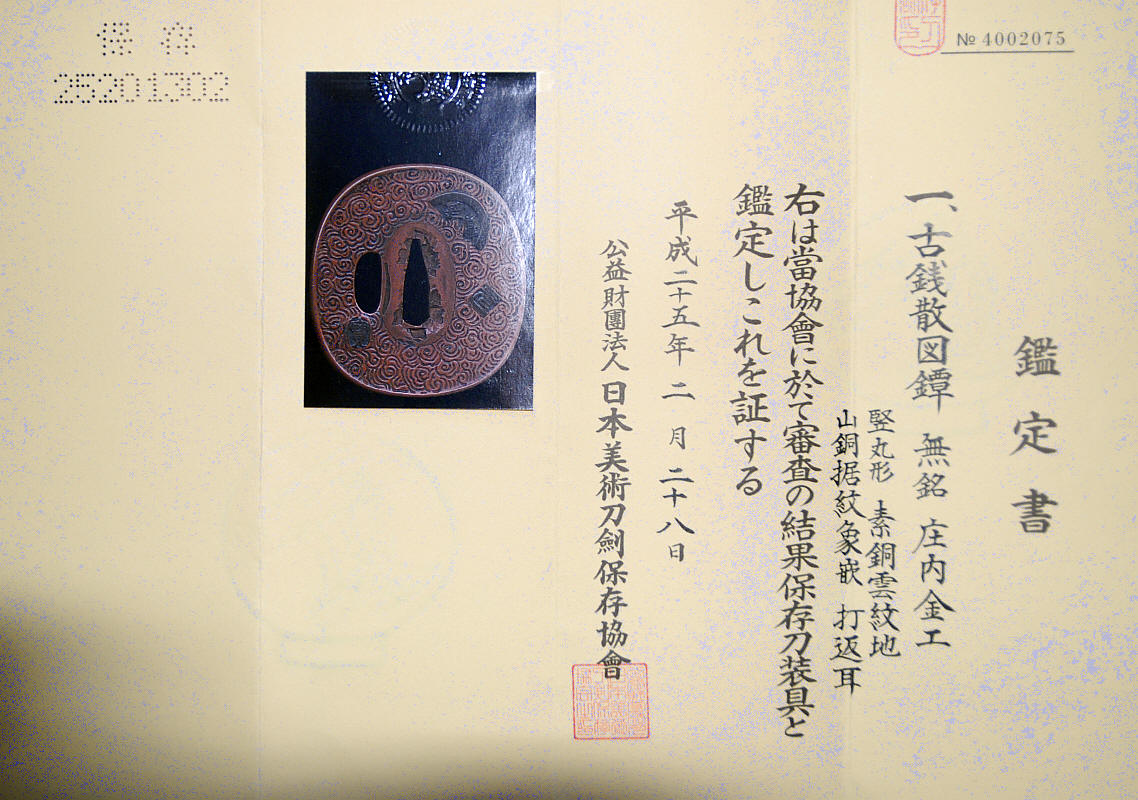 № 4002075
鑑定書
一、古銭散図鐔 無銘 庄内金工
竪丸形 素銅雲紋地
山銅据紋象嵌 打返耳
右は當協會に於て審査の結果保存刀装具と
鑑定しこれを証する
平成二十五年二月二十八日
公益財團法人 日本美術刀劍保存協會
保存
25201302